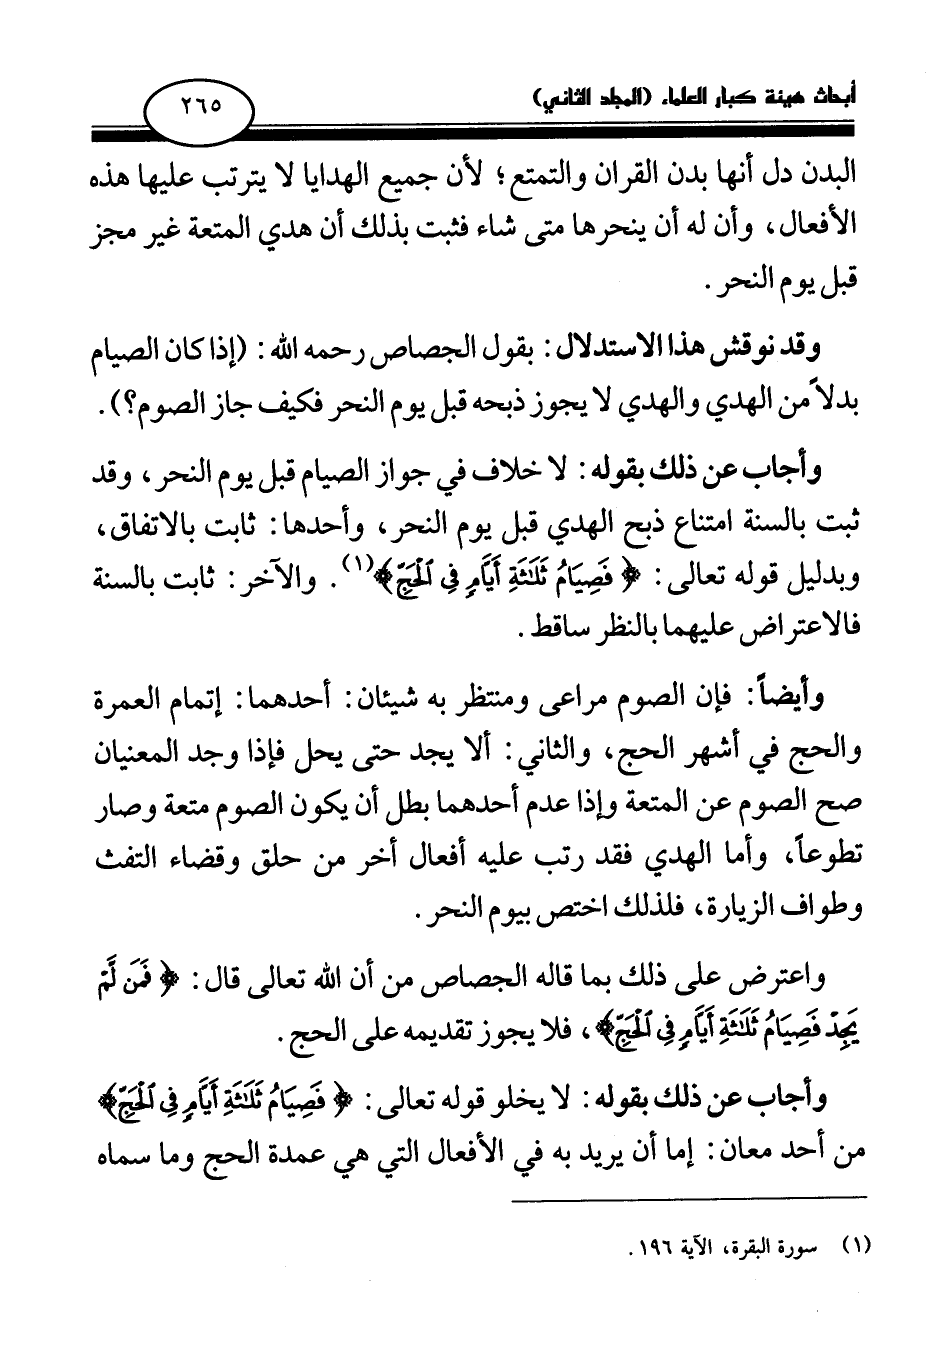 أبحاث هيئة كبار العلماء (المجلد الثاني)
٢٦٥
البدن دل أنها بدن القران والتمتع؛ لأن جميع الهدايا لا يترتب عليها هذه
الأفعال، وأن له أن ينحرها متى شاء فثبت بذلك أن هدي المتعة غير مجز
قبل يوم النحر.
وقد نوقش هذا الاستدلال: بقول الجصاص رحمه الله: (إذا كان الصيام
بدلاً من الهدي والهدي لا يجوز ذبحه قبل يوم النحر فكيف جاز الصوم؟).
وأجاب عن ذلك بقوله: لا خلاف في جواز الصيام قبل يوم النحر، وقد
ثبت بالسنة امتناع ذبح الهدي قبل يوم النحر، وأحدها: ثابت بالاتفاق،
وبدليل قوله تعالى: ﴿فَصِيَامُ ثَلَٰثَةِ أَيَّامٍ فِي ٱلْحَجِّ﴾(١). والآخر: ثابت بالسنة
فالاعتراض عليهما بالنظر ساقط.
وأيضاً: فإن الصوم مراعى ومنتظر به شيئان: أحدهما: إتمام العمرة
والحج في أشهر الحج، والثاني: ألا يجد حتى يحل فإذا وجد المعنيان
صح الصوم عن المتعة وإذا عدم أحدهما بطل أن يكون الصوم متعة وصار
تطوعاً، وأما الهدي فقد رتب عليه أفعال أخر من حلق وقضاء التفث
وطواف الزيارة، فلذلك اختص بيوم النحر.
واعترض على ذلك بما قاله الجصاص من أن الله تعالى قال: ﴿فَمَن لَّمْ
يَجِدْ فَصِيَامُ ثَلَٰثَةِ أَيَّامٍ فِي ٱلْحَجِّ﴾، فلا يجوز تقديمه على الحج.
وأجاب عن ذلك بقوله: لا يخلو قوله تعالى: ﴿فَصِيَامُ ثَلَٰثَةِ أَيَّامٍ فِي ٱلْحَجِّ﴾
من أحد معان: إما أن يريد به في الأفعال التي هي عمدة الحج وما سماه
(١) سورة البقرة، الآية ١٩٦.